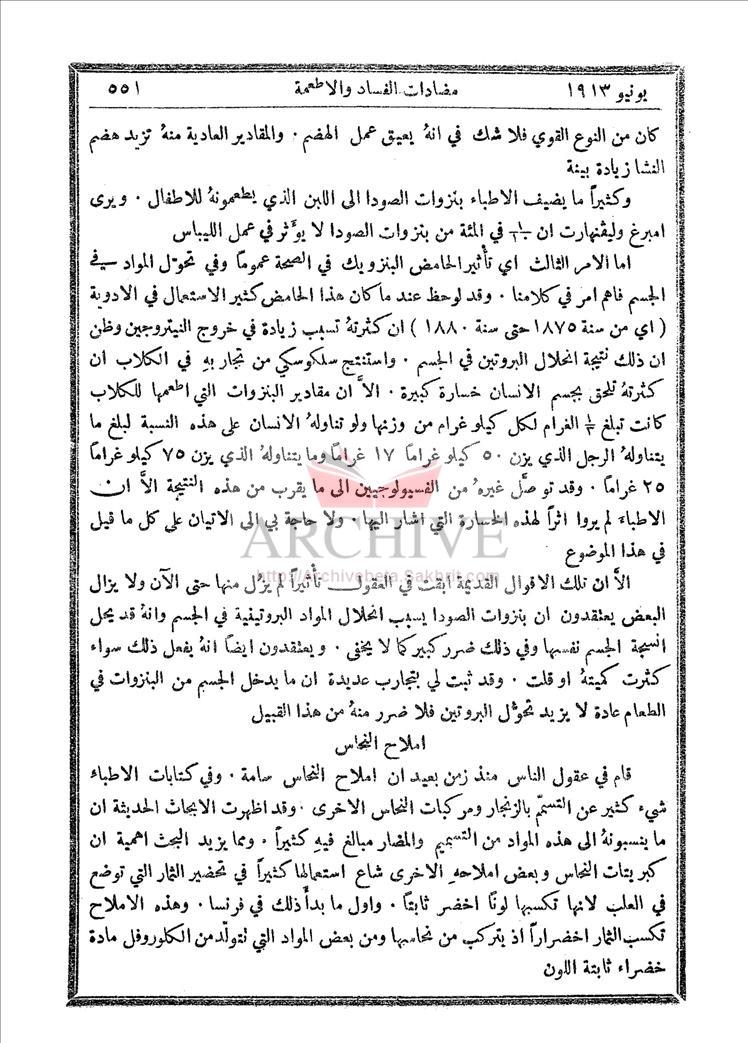 يونيو ١٩١٣ مضادات الفساد والاطعمة ٥٥١
كان من النوع القوي فلا شك في انهُ يعيق عمل الهضم . والمقادير العادية منهُ تزيد هضم
النشا زيادة بينة
وكثيراً ما يضيف الاطباء بنزوات الصودا الى اللبن الذي يطعمونهُ للاطفال . ويرى
امبرغ وليڤنهارت ان في المئة من بنزوات الصودا لا يؤثر في عمل الليباس
اما الامر الثالث اي تأثير الحامض البنزويك في الصحة عموماً وفي تحوّل المواد في
الجسم فاهم امر في كلامنا . وقد لوحظ عند ما كان هذا الحامض كثير الاستعمال في الادوية
( اي من سنة ١٨٧٥ حتى سنة ١٨٨٠ ) ان كثرتهُ تسبب زيادة في خروج النيتروجين وظن
ان ذلك نتيجة انحلال البروتين في الجسم . واستنتج سلكوسكي من تجاربهِ في الكلاب ان
كثرتهُ تلحق بجسم الانسان خسارة كبيرة . الاَّ ان مقادير البنزوات التي اطعمها للكلاب
كانت تبلغ الغرام لكل كيلو غرام من وزنها ولو تناولهُ الانسان على هذه النسبة لبلغ ما
يتناولهُ الرجل الذي يزن ٥٠ كيلو غراماً ١٧ غراماً وما يتناولهُ الذي يزن ٧٥ كيلو غراماً
٢٥ غراماً . وقد توصَّل غيرهُ من الفسيولوجيين الى ما يقرب من هذه النتيجة الاَّ ان
الاطباء لم يروا اثراً لهذه الخسارة التي اشار اليها . ولا حاجة بي الى الاتيان على كل ما قيل
في هذا الموضوع
الاَّ ان تلك الاقوال القديمة ابقت في العقول تأثيراً لم يزُل منها حتى الآن ولا يزال
البعض يعتقدون ان بنزوات الصودا يسبب انحلال المواد البروتينية في الجسم وانهُ قد يحل
انسجة الجسم نفسها وفي ذلك ضرر كبير كما لا يخفى . ويعتقدون ايضاً انهُ يفعل ذلك سواء
كثرت كميتهُ او قلت . وقد ثبت لي بتجارب عديدة ان ما يدخل الجسم من البنزوات في
الطعام عادة لا يزيد تحوُّل البروتين فلا ضرر منهُ من هذا القبيل
املاح النحاس
قام في عقول الناس منذ زمن بعيد ان املاح النحاس سامة . وفي كتابات الاطباء
شيء كثير عن التسمّم بالزنجار ومركبات النحاس الاخرى . وقد اظهرت الابحاث الحديثة ان
ما ينسبونهُ الى هذه المواد من التسميم والمضار مبالغ فيهِ كثيراً . ومما يزيد البحث اهمية ان
كبريتات النحاس وبعض املاحهِ الاخرى شاع استعمالها كثيراً في تحضير الثمار التي توضع
في العلب لانها تكسبها لوناً اخضر ثابتاً . واول ما بدأ ذلك في فرنسا . وهذه الاملاح
تكسب الثمار اخضراراً اذ يتركب من نحاسها ومن بعض المواد التي تتولّد من الكلوروفل مادة
خضراء ثابتة اللون
ARCHIVE
http://Archivebeta.Sakhrit.com